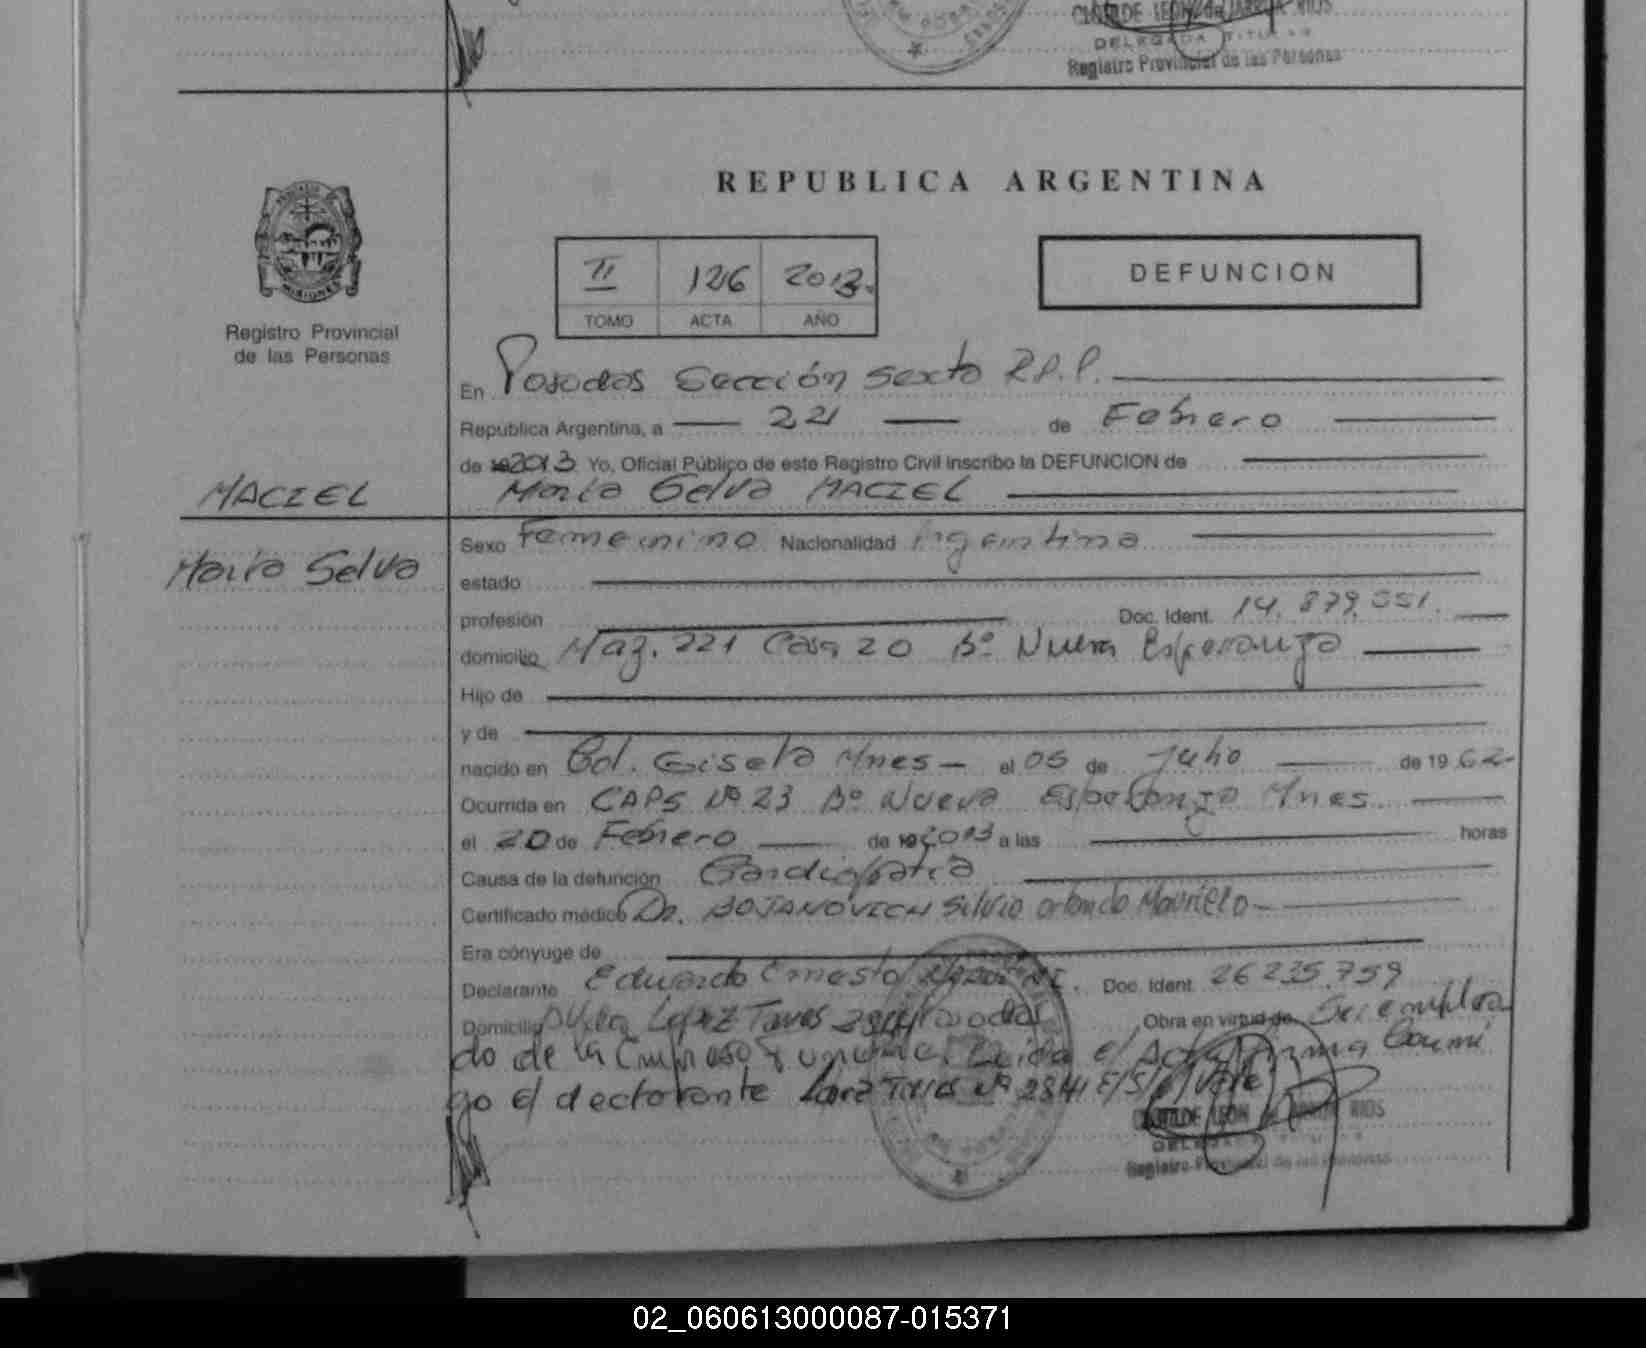 CLOTILDE LEON de RIOS
DELEGADA TITULAR
Registro Provincial de las Personas
REPUBLICA ARGENTINA
MISIONES
II 126 2013.
DEFUNCION
TOMO ACTA AÑO
Registro Provincial
de las Personas
En Posadas Sección Sexta R.P.P.
Republica Argentina, a 21 de Febrero
de 2013 Yo, Oficial Público de este Registro Civil inscribo la DEFUNCION de
MACIEL
María Selva MACIEL
Sexo Femenino Nacionalidad Argentina
María Selva
estado
profesión Doc. Ident. 14.879.551.
domicilio Maz. 221 Casa 20 Bº Nueva Esperanza
Hijo de
y de
nacido en Col. Gisela Mnes - el 05 de Julio de 1962-
Ocurrida en CAPS Nº 23 Bº Nueva Esperanza Mnes.
el 20 de Febrero de 2013 a las horas
Causa de la defunción Cardiopatía
Certificado médico Dr. BOJANOVICH Silvio Orlando Mauricio
Era cónyuge de
Declarante Eduardo Ernesto Doc. Ident. 26.235.759
Domicilio López Torres 2841 Posadas Obra en virtud de Ser emplea
do de la Empresa Leida el Acta Firma Conmi
go el declarante Torres Nº 2841 E/S/ Vale
CLOTILDE LEON de RIOS
DELEGADA TITULAR
Registro Provincial de las Personas
02_060613000087-015371